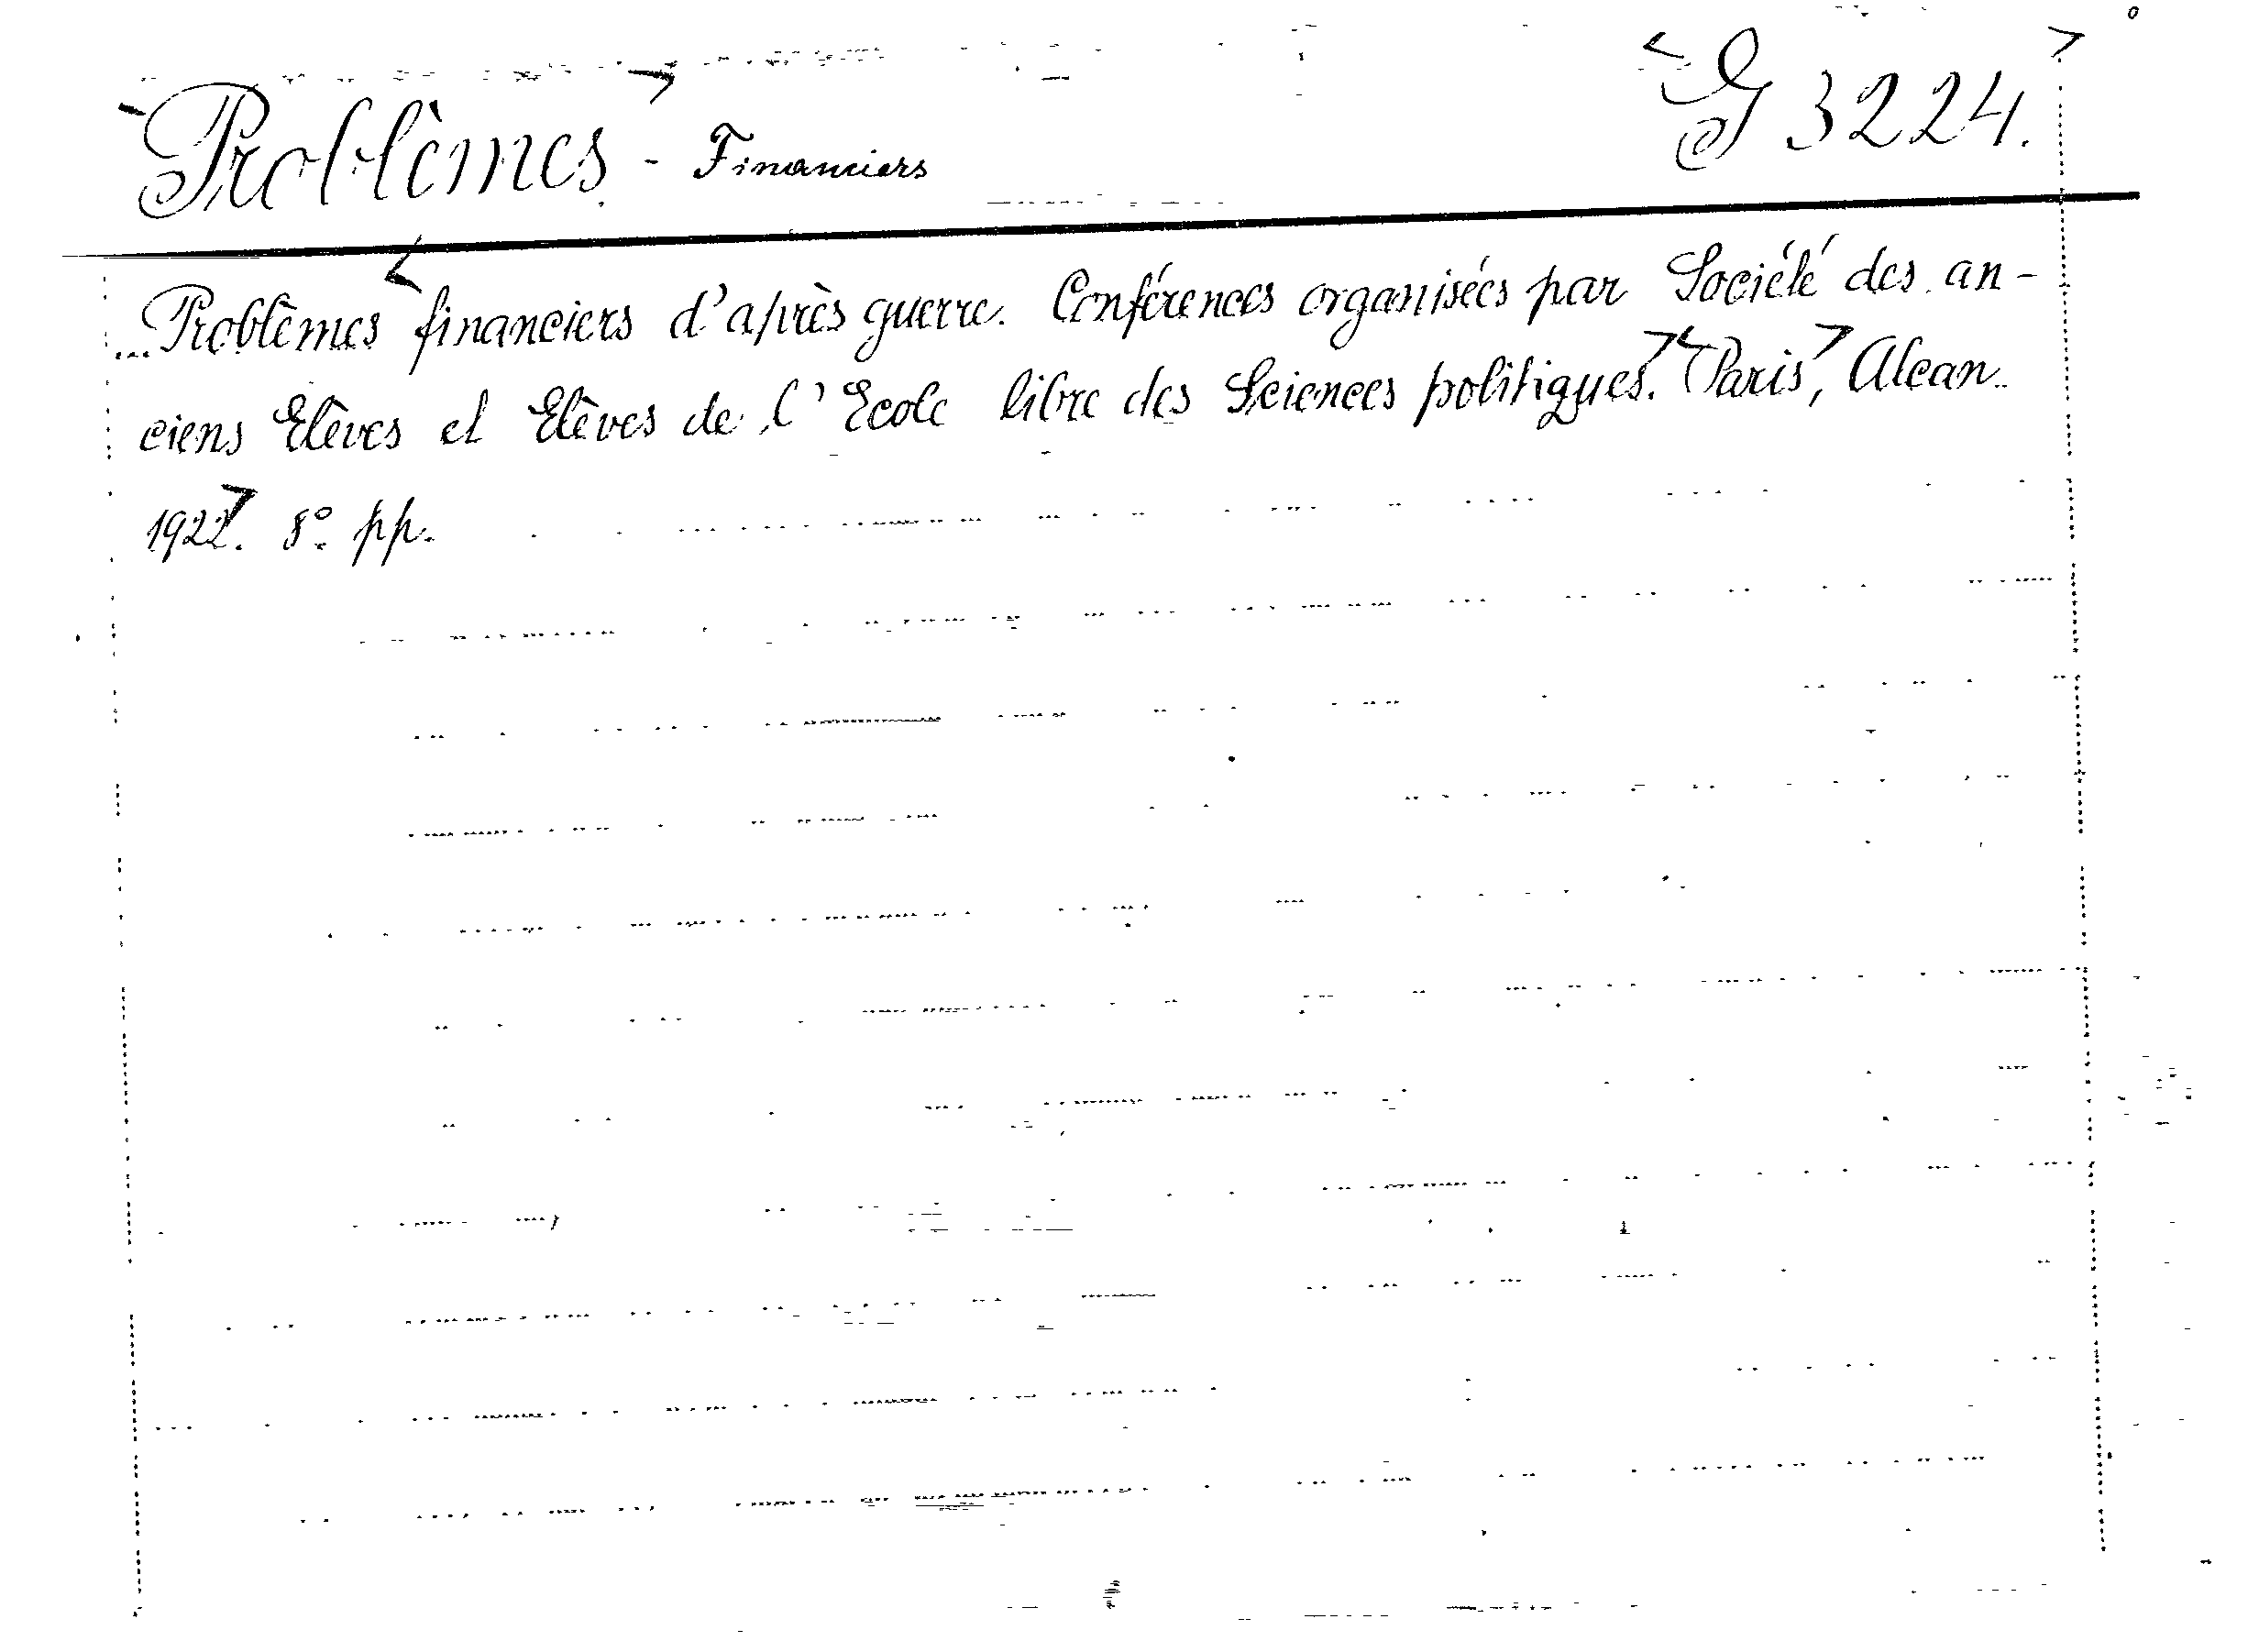 Problèmes - Financiers G 3224.
...Problèmes financiers d'après guerre. Conférences organisées par Société des an-
ciens Elèves et Elèves de l'Ecole libre des Sciences politiques. Paris, Alcan.
1922. 8° pp.